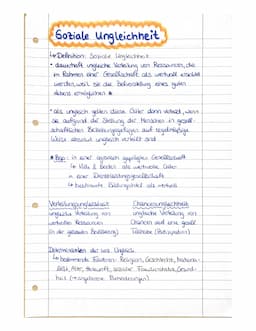 Soziale Ungleichheit
↳ Definition: Soziale Ungleichheit
• dauerhaft ungleiche Verteilung von Ressourcen, die
im Rahmen einer Gesellschaft als wertvoll erachtet
werden, weil sie die Bereicherung eines guten
Lebens ermöglichen
• als ungleich gelten diese Güter dann verteilt, wenn
sie aufgrund der Stellung der Menschen in gesell-
schaftlichen Beziehungsgefügen auf regelmäßige
Weise absolut ungleich verteilt sind
• Bsp.: in einer agrarisch geprägten Gesellschaft
↳ Vieh & Boden als wertvolle Güter
in einer Dienstleistungsgesellschaft
↳ bestimmte Bildungstitel als wertvoll
Verteilungsungleichheit
ungleiche Verteilung von
wertvollen Ressourcen
(in der gesamten Bevölkerung)
Chancenungleichheit
ungleiche Verteilung von
Chancen auf eine gesell.
Teilhabe (Partizipation)
Determinanten der soz. Ungleich.
↳ bestimmende Faktoren: Religion, Geschlecht, Nationa-
lität, Alter, Herkunft, sozialer Familienstatus, Gesund-
heit (→ angeborene Behinderungen)